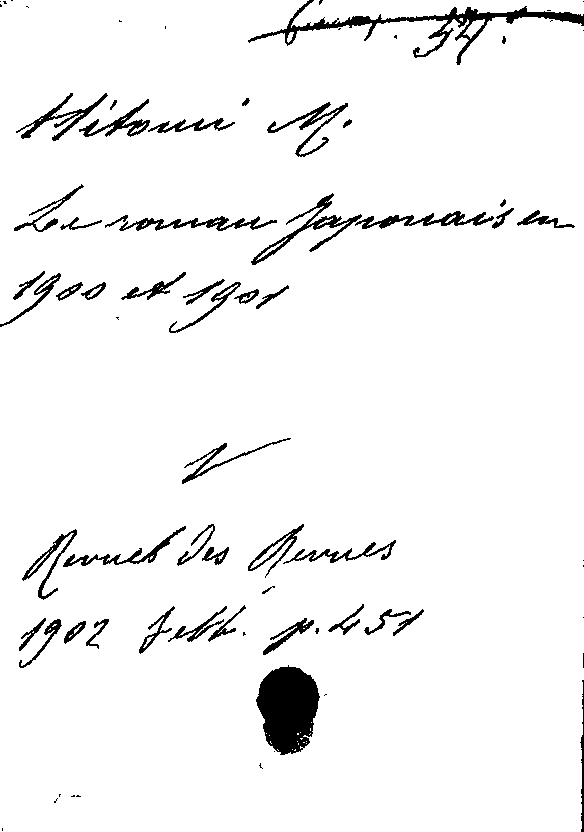 54.
Hitomi M.
Le roman Japonais en
1900 et 1901
V
Revue des Revues
1902 Febb. p. 451